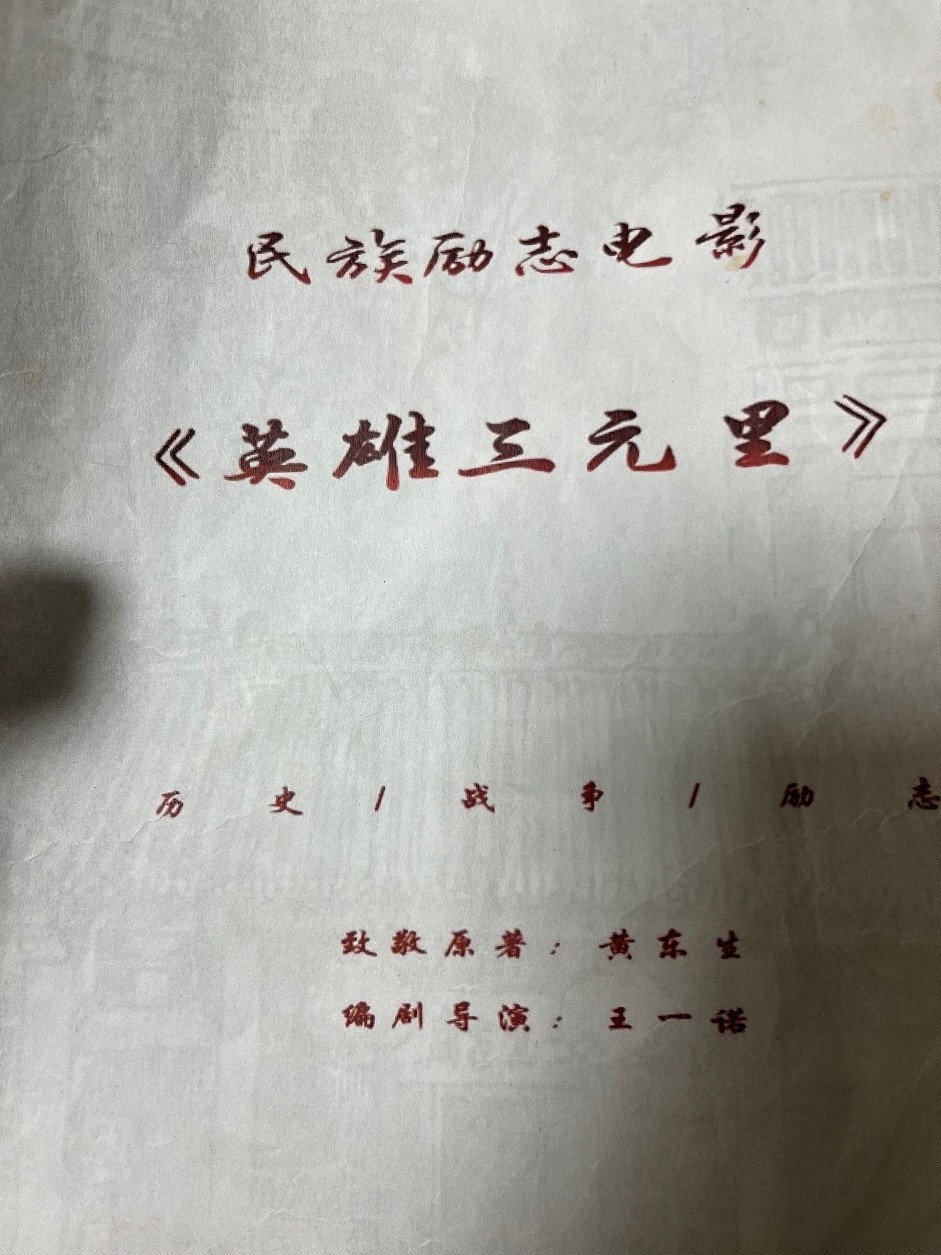 民族励志电影
《英雄三元里》
历史/战争/励志
致敬原著：黄东生
编剧导演：王一诺